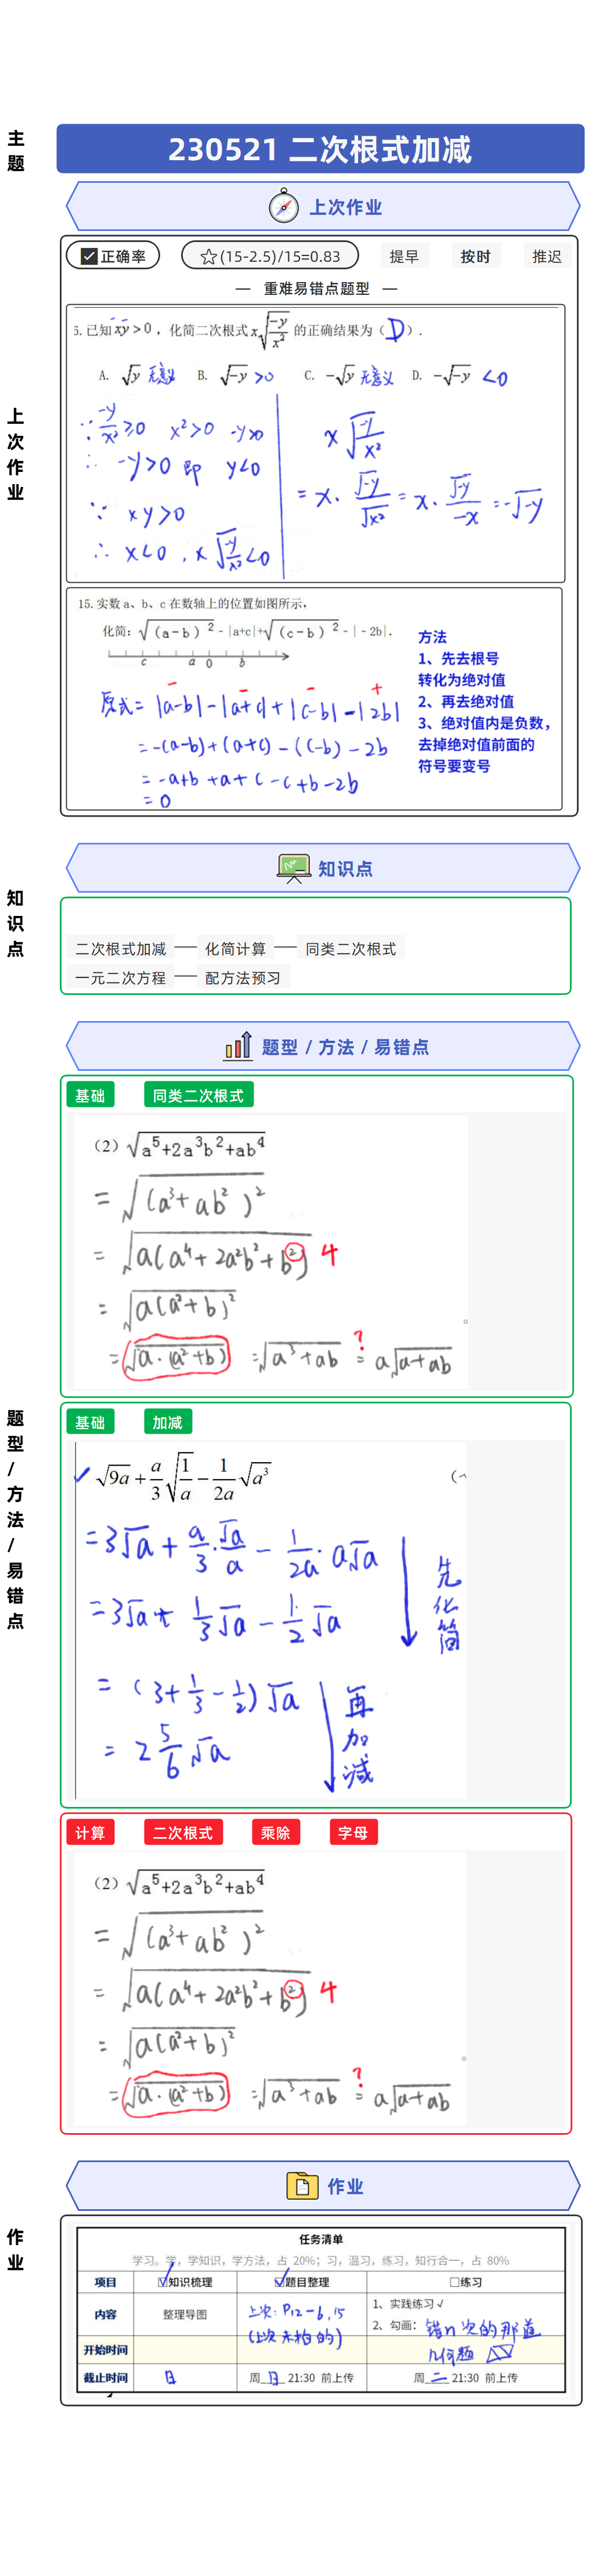 主题
230521 二次根式加减
上次作业
上次作业
正确率
☆(15-2.5)/15=0.83
提早
按时
推迟
— 重难易错点题型 —
6. 已知 xy>0，化简二次根式 x√(-y/x²) 的正确结果为（D）.
A. √y 无意义 B. √-y >0 C. -√y 无意义 D. -√-y <0
∵ -y/x² ≥0 x²>0 -y≥0
∴ -y>0 即 y<0
∵ xy>0
∴ x<0 , x√(-y/x²) <0
x√(-y/x²)
= x· √-y/√x² = x· √-y/-x = -√-y
15. 实数 a、b、c 在数轴上的位置如图所示，
化简：√(a-b)² - |a+c|+√(c-b)² - | - 2b|.
c a 0 b
原式= |a-b| - |a+c| + |c-b| - |2b|
− − − +
= -(a-b) + (a+c) - (c-b) - 2b
= -a+b +a+c -c+b -2b
= 0
方法
1、先去根号
转化为绝对值
2、再去绝对值
3、绝对值内是负数，
去掉绝对值前面的
符号要变号
知识点
知识点
二次根式加减 — 化简计算 — 同类二次根式
一元二次方程 — 配方法预习
题型/方法/易错点
题型 / 方法 / 易错点
基础 同类二次根式
（2）√(a⁵+2a³b²+ab⁴)
= √(a³+ab²)²
= √a(a⁴+2a²b²+b²) 4
= √a(a²+b)²
= √a·(a²+b) = √a³+ab ?= a√a+ab
基础 加减
✓ √9a + a/3 √(1/a) - 1/2a √a³
= 3√a + a/3 · √a/a - 1/2a · a√a
= 3√a + 1/3 √a - 1/2 √a
先化简
= (3+1/3-1/2) √a
= 2 5/6 √a
再加减
计算 二次根式 乘除 字母
（2）√(a⁵+2a³b²+ab⁴)
= √(a³+ab²)²
= √a(a⁴+2a²b²+b²) 4
= √a(a²+b)²
= √a·(a²+b) = √a³+ab ?= a√a+ab
作业
作业
任务清单
学习。学，学知识，学方法，占 20%；习，温习，练习，知行合一，占 80%
项目 ☑知识梳理 ☑题目整理 □练习
内容 整理导图 上次: P12-6,15 (上次未拍的)
1、实践练习 √
2、勾画: 错n次的那道几何题
开始时间
截止时间 日 周 日 21:30 前上传 周 二 21:30 前上传